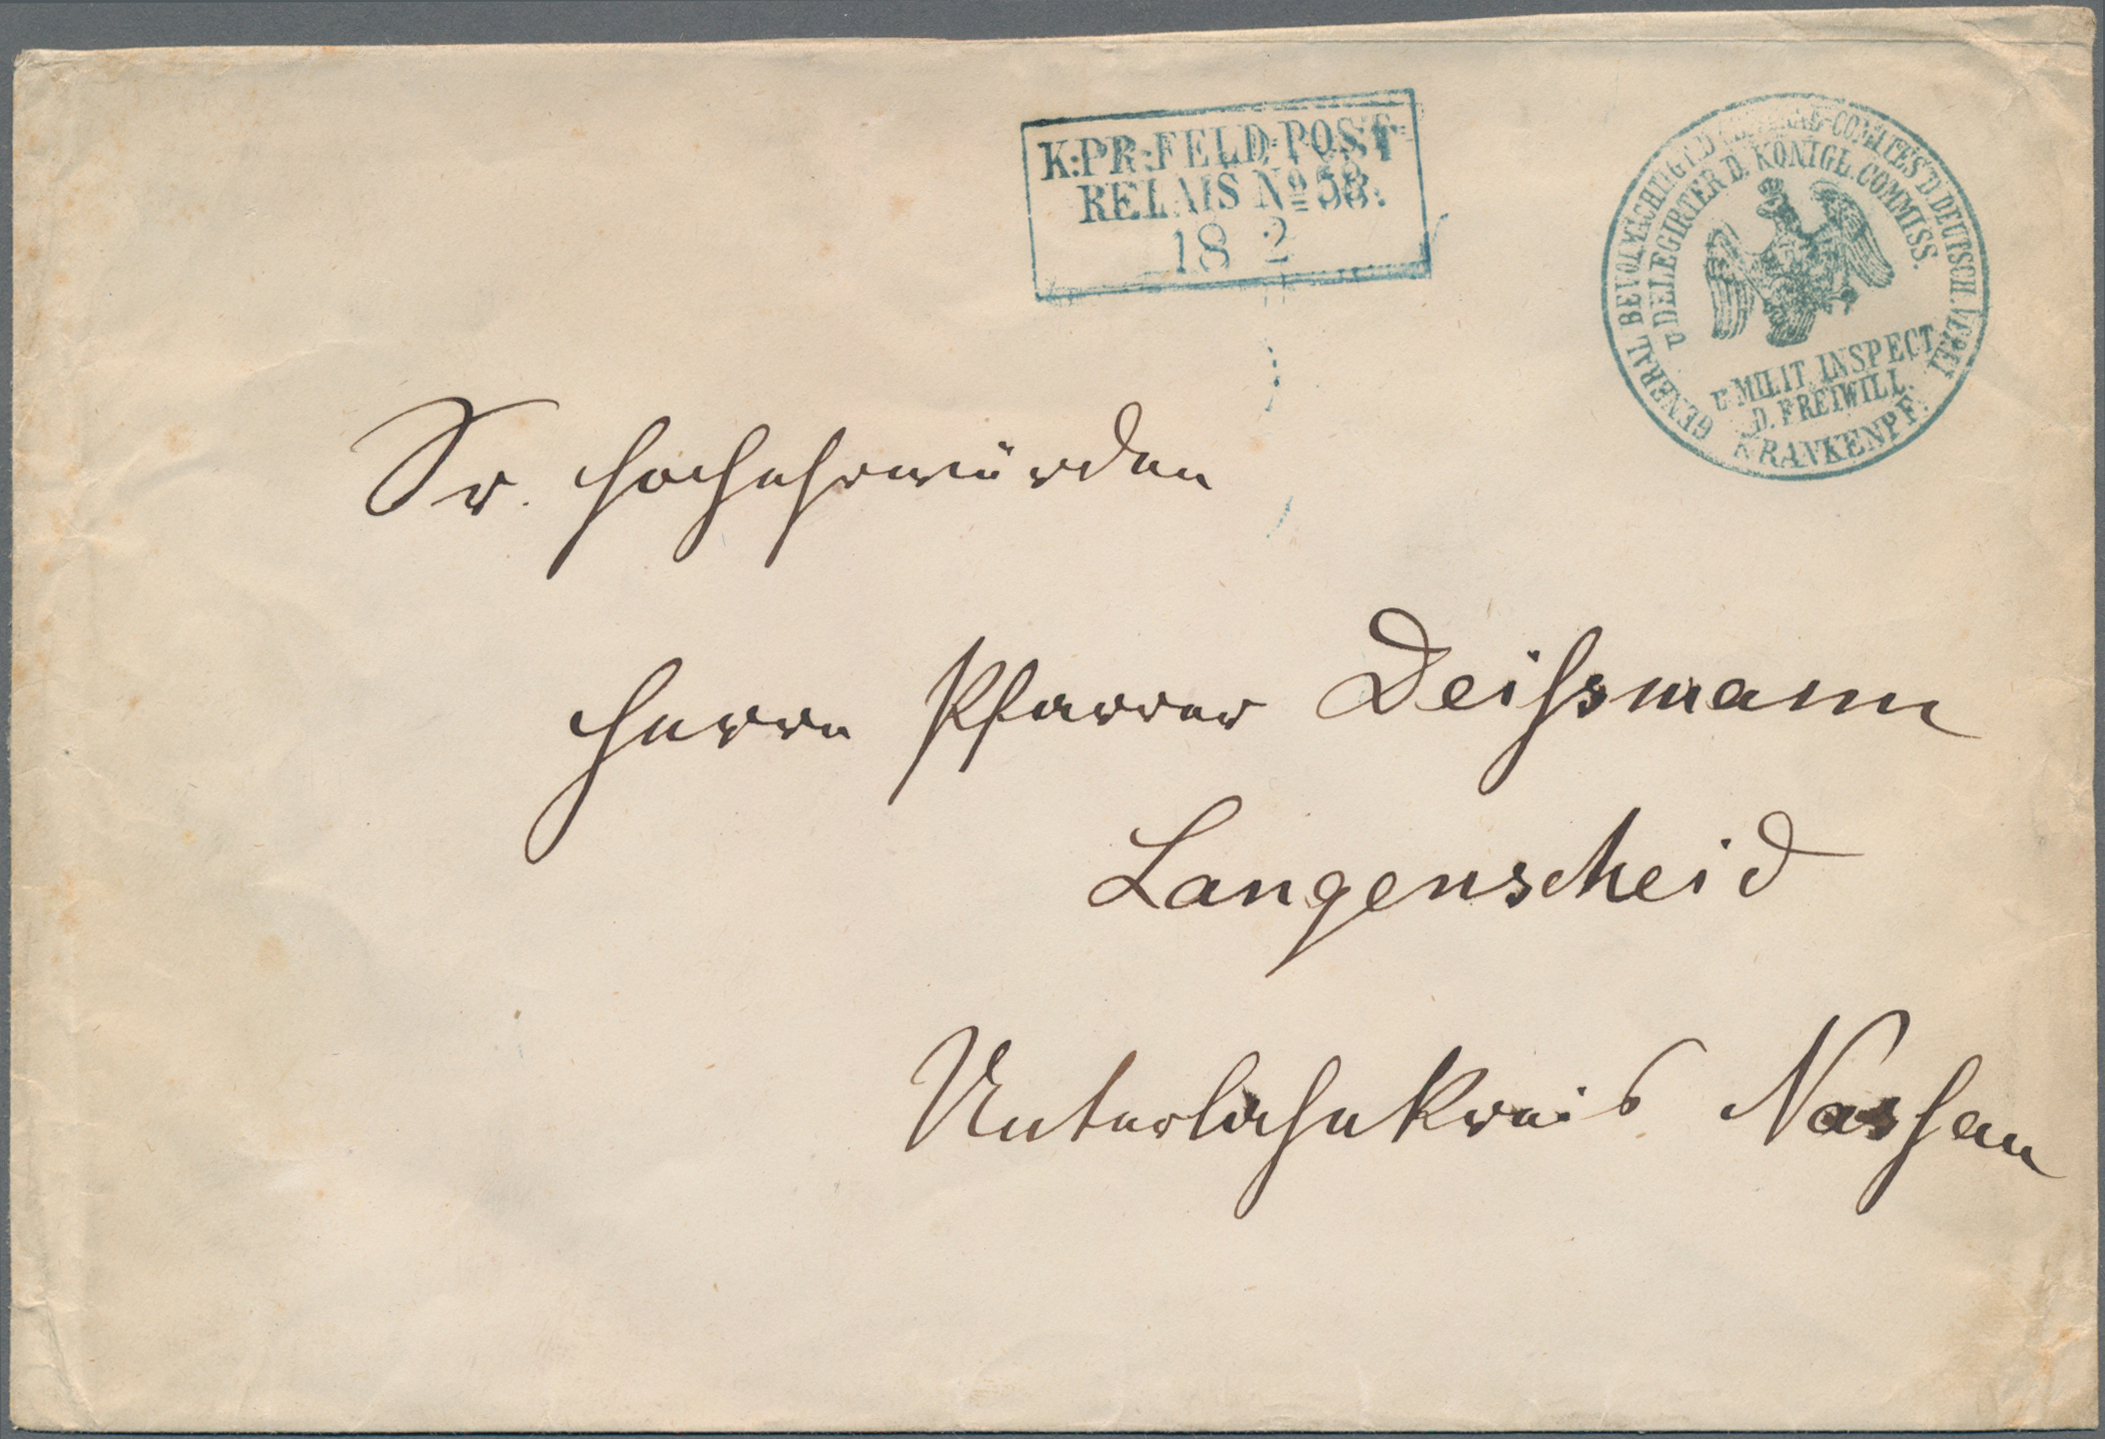 K:PR:FELD-POST
RELAIS No 58.
18 2
GENERAL BEVOLMÆCHTIGT.D. CENTRAL-COMITES D. DEUTSCH. VEREI
U DELEGIRTER D. KÖNIGL. COMMISS.
U MILIT. INSPECT.
D. FREIWILL.
KRANKENPF.
Sr. Hochehrwürden
Herrn Pfarrer Deißmann
Langenscheid
Unterlahnkreis Nassau